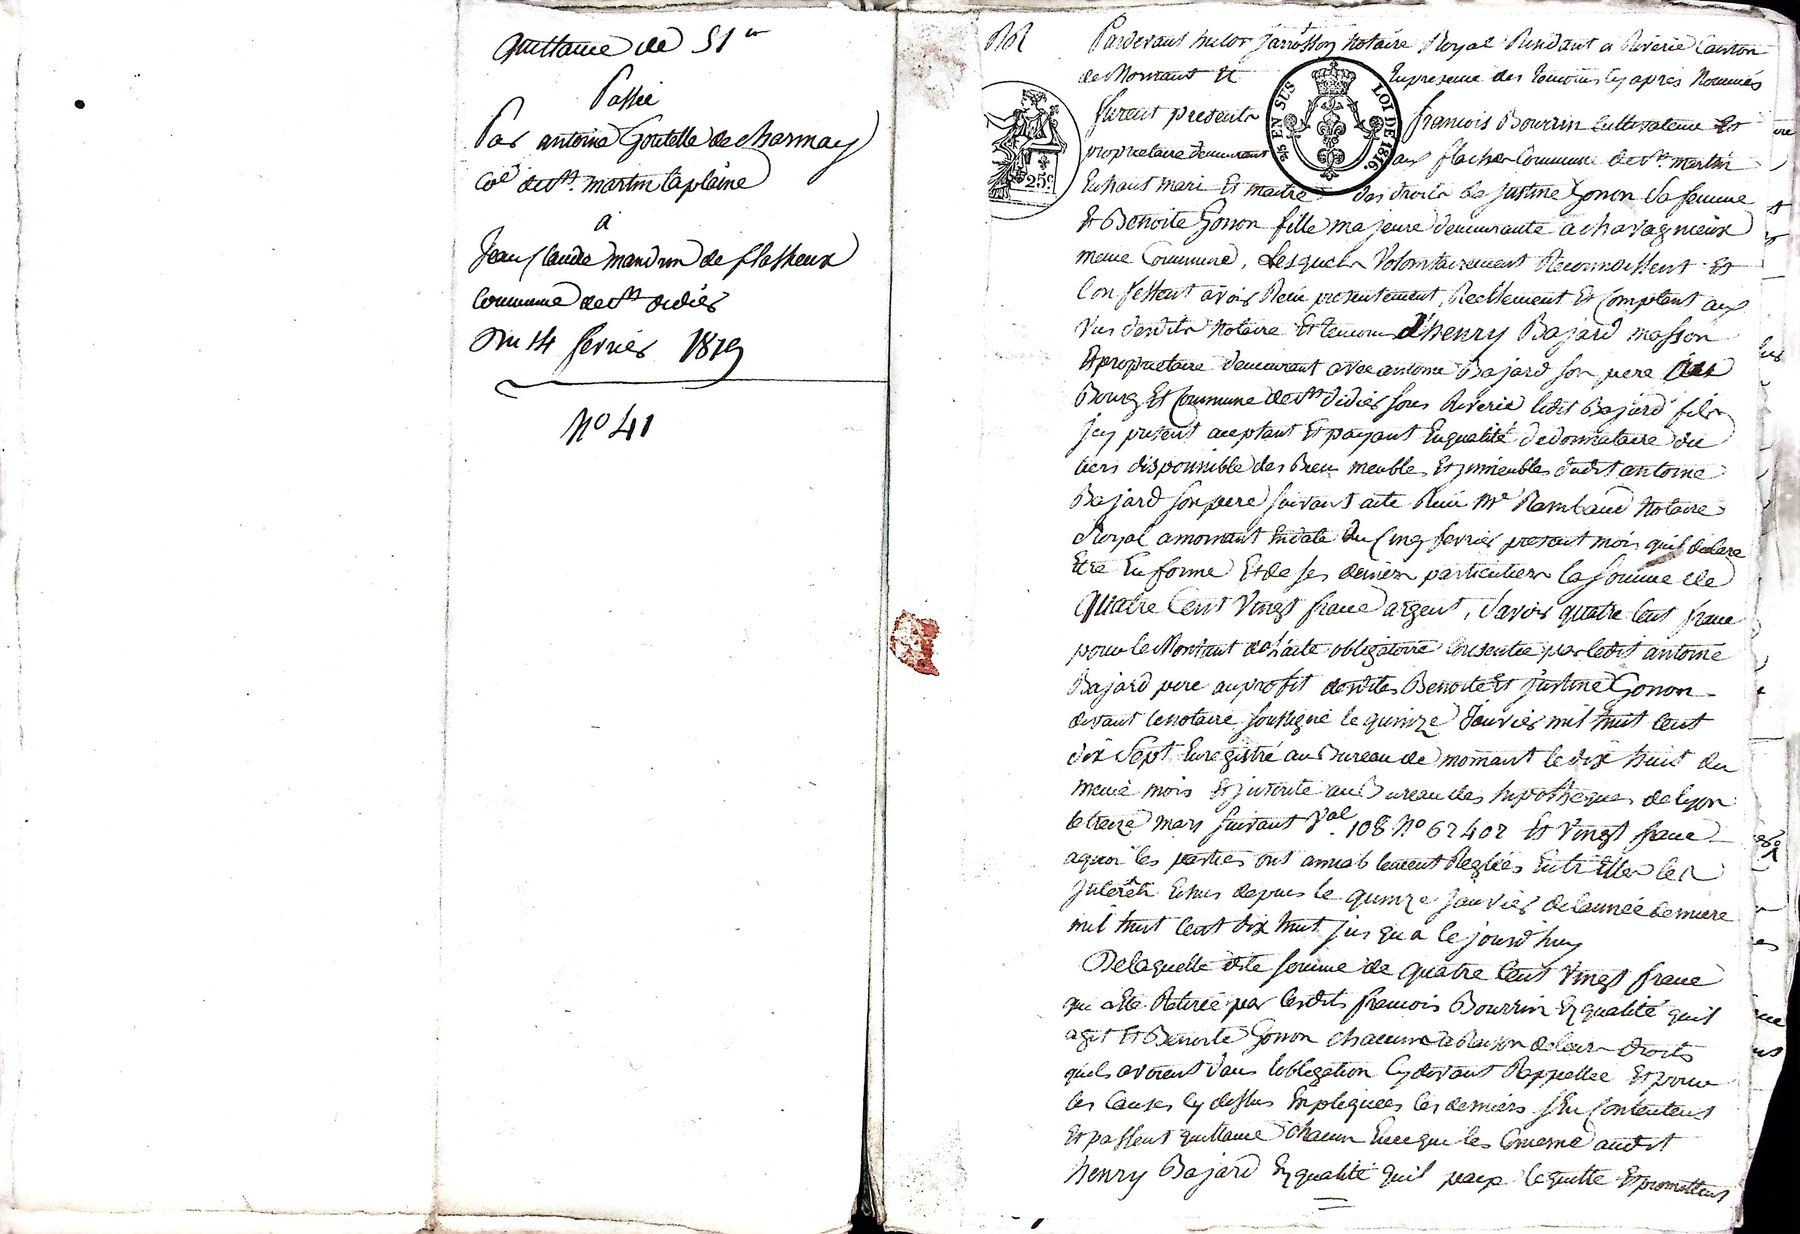 quittance de 51 ₶
Passée
Par antoine Goutelle de charmay
Cne de st martin la plaine
a
Jean Claude mandrin de flasheux
Commune de st didier
Du 14 fevrier 1819
No 41
Pardevant jarrosson Notaire Royal Residant a Riverie Canton
de Mornant Et En presence des temoins cy apres Nommés
furent presents francois Bourrin cultivateur Et
proprietaire demeurant aux flaches Commune de st martin
En haut mari Et maitre des droits de Justine Gonon sa femme
Et Benoite Gonon fille majeure demeurante a chavagnieux
meme Commune, Lesquels Volontairement Reconnoissent Et
Confessent avoir Reçu presentement, Reellement Et Comptant aux
Vus desdits Notaire Et temoins d'henry Bajard masson
Et proprietaire demeurant avec antoine Bajard son pere au
Bourg Et Commune de st didier sous Riverie ledit Bajard fils
jcy present aceptant Et payant En qualité de donnataire du
tiers disponnible des Bien meubles Et jmmeubles dudit antoine
Bajard son pere suivant acte Reçu Me Rambaud Notaire
Royal a mornant En date du Cinq fevrier present mois qu'il declare
Etre En forme Et de ses deniers particuliers la somme de
Quatre Cent Vingt franc argent, savoir quatre Cent franc
pour le Montant de l'acte obligatoire Consentie par ledit antoine
Bajard pere au profit desdites Benoite Et Justine Gonon
devant le notaire soussigné le quinze Janvier mil huit Cent
dix sept Enregistré au Bureau de mornant le dix huit du
meme mois Et jnscrite au Bureau des hypotheques de lyon
le treize mars suivant Vol. 108 No 62402 Et Vingt franc
a quoi les parties ont amiablement Reglées Entr Elles les
jnterêts Echus depuis le quinze janvier de l'année derniere
mil huit Cent dix huit jusqu'a Ce jourd'huy
De laquelle dite somme de quatre Cent Vingt franc
qui a Eté Retirée par lesdits francois Bourrin En qualité qu'il
agit Et Benoite Gonon chacun a Raison de leurs droits
quels avoient dans l'obligation Cy devant Rappellée Et pour
les Causes Cy dessus Expliquées les derniers s'En Contentent
Et passent quittance chacun En ce qui les Concerne audit
henry Bajard En qualité qu'il paye le quitte Et promettent
25c
25 EN SUS LOI DE 1816.